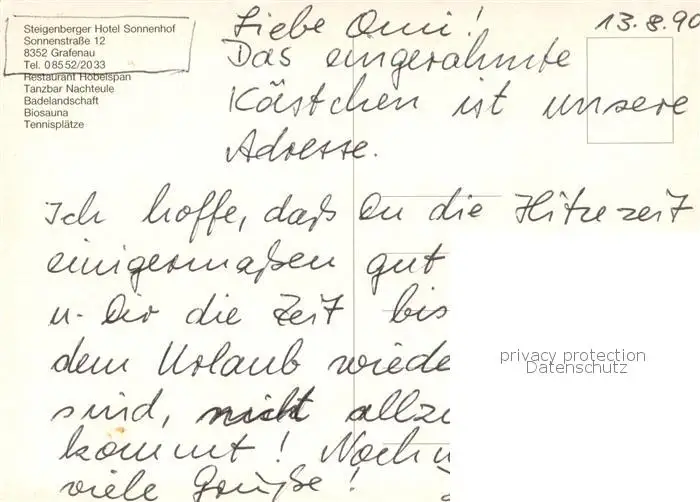 Steigenberger Hotel Sonnenhof
Sonnenstraße 12
8352 Grafenau
Tel. 08552/2033
Restaurant Hobelspan
Tanzbar Nachteule
Badelandschaft
Biosauna
Tennisplätze
13.8.90
Liebe Omi!
Das eingerahmte
Kästchen ist unsere
Adresse.
Ich hoffe, daß Du die Hitzezeit
einigermaßen gut
u. Dir die Zeit bis
dem Urlaub wiede
sind, nicht allzu
kommt! Noch
viele Grüße!
privacy protection
Datenschutz